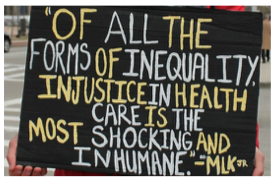 "OF ALL THE
FORMS OF INEQUALITY,
INJUSTICE IN HEALTH
CARE IS THE
MOST SHOCKING AND
INHUMANE." -MLK JR